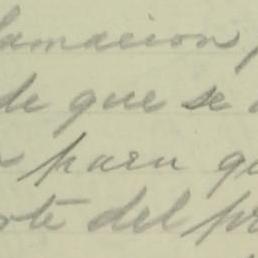 lamacion
de que se
para qu
te del pr